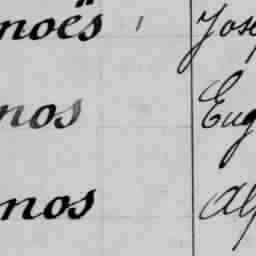 noës Jose
nos Eug
nos Alf